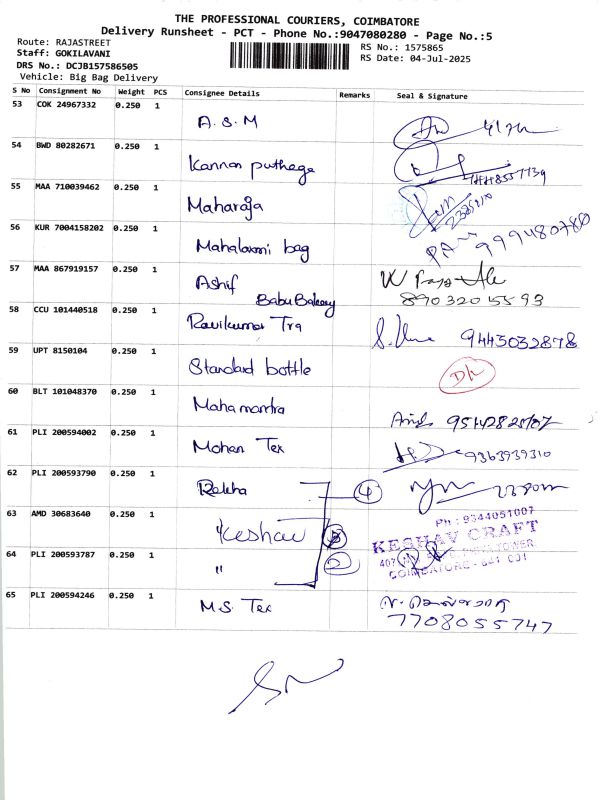 THE PROFESSIONAL COURIERS, COIMBATORE
Delivery Runsheet - PCT - Phone No.:9047080280 - Page No.:5
Route: RAJASTREET RS No.: 1575865
Staff: GOKILAVANI RS Date: 04-Jul-2025
DRS No.: DCJB157586505
Vehicle: Big Bag Delivery
S No Consignment No Weight PCS Consignee Details Remarks Seal & Signature
53 COK 24967332 0.250 1 A.S.M
54 BWD 80282671 0.250 1 Kannan puthaga
55 MAA 710039462 0.250 1 Maharaja
56 KUR 7004158202 0.250 1 Mahalaxmi bag 999480780
57 MAA 867919157 0.250 1 Ashif
Babu Bakery 8903205593
58 CCU 101440518 0.250 1 Ravikumar Tra 9443032878
59 UPT 8150104 0.250 1 Standard bottle D/L
60 BLT 101048370 0.250 1 Mahamantra
61 PLI 200594002 0.250 1 Mohan Tex 9363939310
62 PLI 200593790 0.250 1 Rekha 4
63 AMD 30683640 0.250 1 Keshav
Ph : 9344051007
KESHAV CRAFT
64 PLI 200593787 0.250 1 " 2
COIMBATORE - 641 001
65 PLI 200594246 0.250 1 M.S. Tex
7708055747